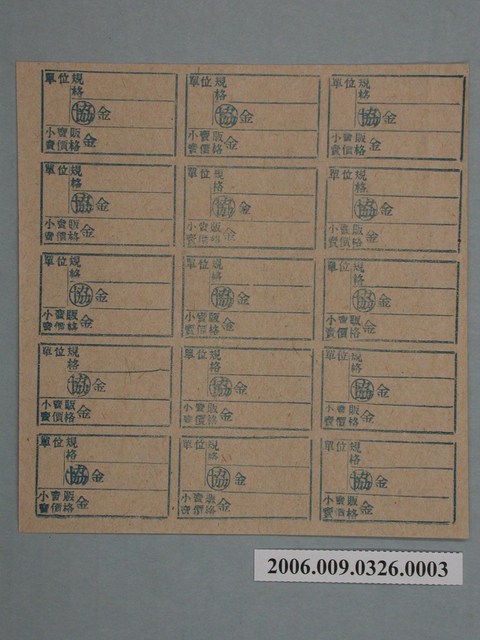 單位規
格
協 金
小賣販
賣價格 金
單位規
格
協 金
小賣販
賣價格 金
單位規
格
協 金
小賣販
賣價格 金
單位規
格
協 金
小賣販
賣價格 金
單位規
格
協 金
小賣販
賣價格 金
單位規
格
協 金
小賣販
賣價格 金
單位規
格
協 金
小賣販
賣價格 金
單位規
格
協 金
小賣販
賣價格 金
單位規
格
協 金
小賣販
賣價格 金
單位規
格
協 金
小賣販
賣價格 金
單位規
格
協 金
小賣販
賣價格 金
單位規
格
協 金
小賣販
賣價格 金
單位規
格
協 金
小賣販
賣價格 金
單位規
格
協 金
小賣販
賣價格 金
單位規
格
協 金
小賣販
賣價格 金
2006.009.0326.0003